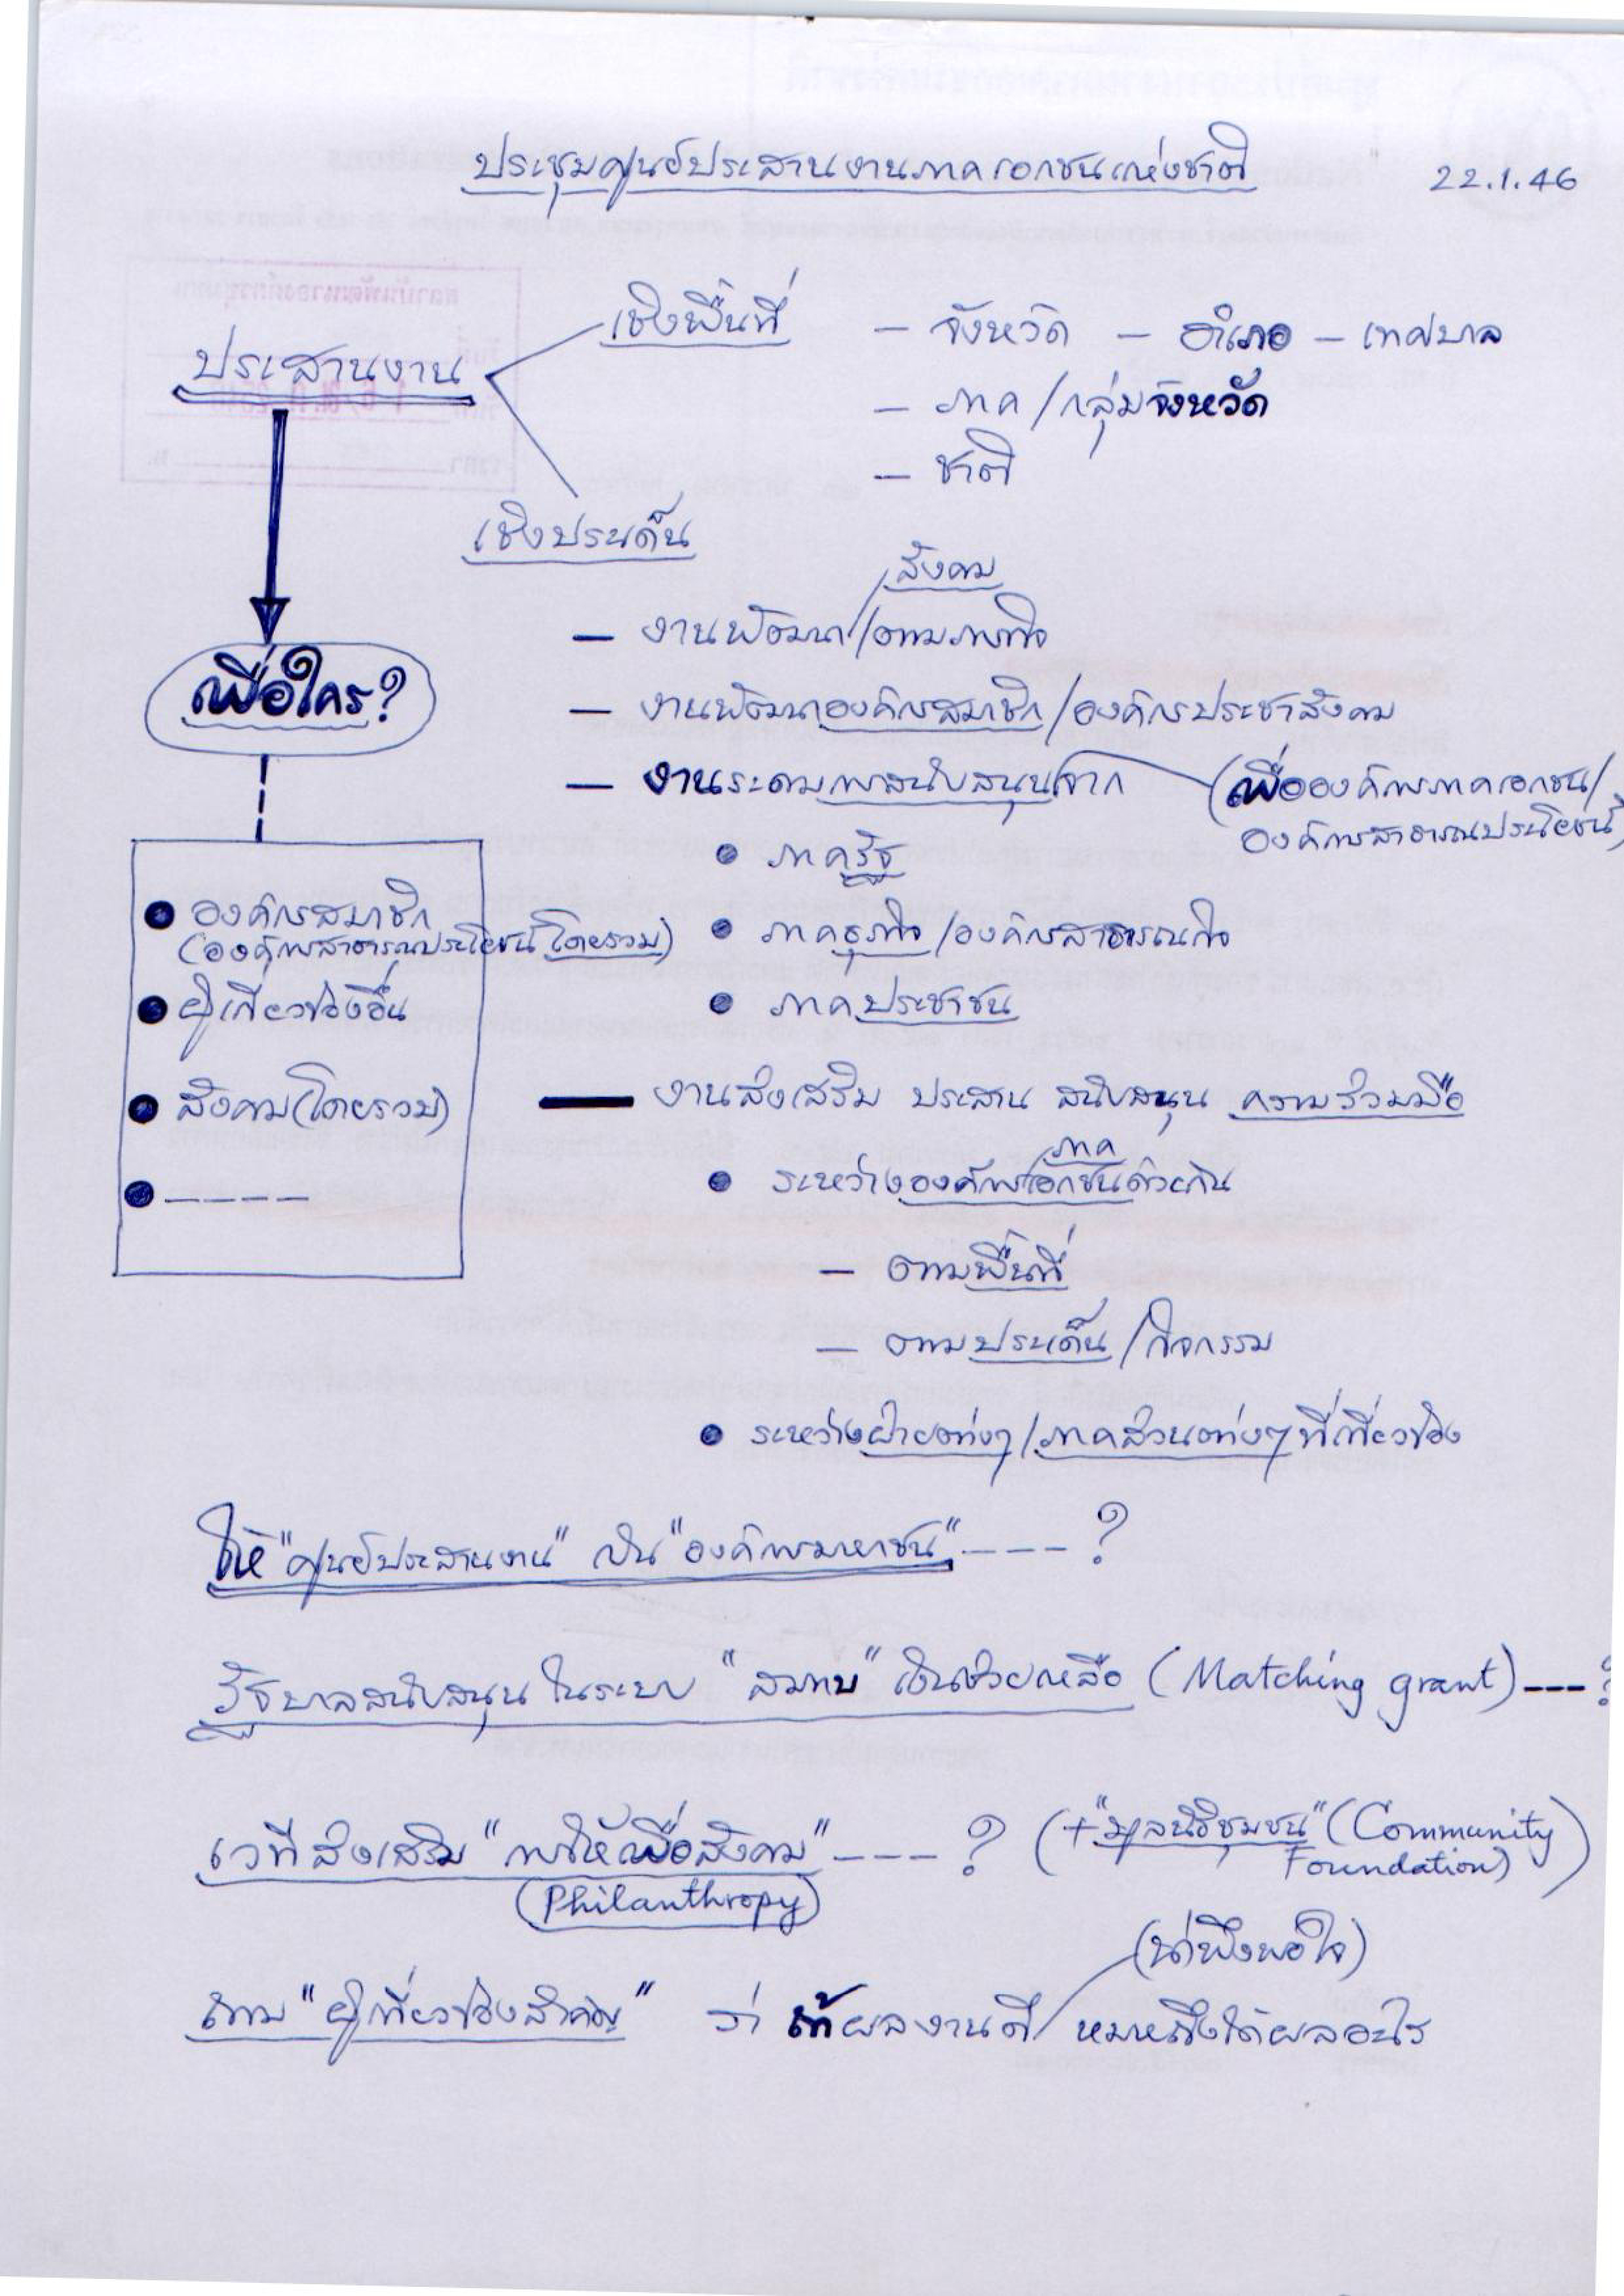 ประชุมศูนย์ประสานงานภาคเอกชนแห่งชาติ 22.1.46
ประสานงาน
เชิงพื้นที่ – จังหวัด – อำเภอ – เทศบาล
– ภาค/กลุ่มจังหวัด
– ชาติ
เชิงประเด็น
สังคม
– งานพัฒนา/ตามภารกิจ
เพื่อใคร?
– งานพัฒนาองค์กรสมาชิก/องค์กรประชาสังคม
– งานระดมการสนับสนุนจาก (เพื่อองค์การภาคเอกชน/
องค์การสาธารณประโยชน์)
● ภาครัฐ
● ภาคธุรกิจ/องค์กรสาธารณกิจ
● ภาคประชาชน
● องค์กรสมาชิก
(องค์การสาธารณประโยชน์โดยรวม)
● ผู้เกี่ยวข้องอื่น
● สังคม(โดยรวม)
● -----
— งานส่งเสริม ประสาน สนับสนุน ความร่วมมือ
ภาค
● ระหว่างองค์การเอกชนด้วยกัน
– ตามพื้นที่
– ตามประเด็น/กิจกรรม
● ระหว่างฝ่ายต่างๆ/ภาคส่วนต่างๆที่เกี่ยวข้อง
ให้ "ศูนย์ประสานงาน" เป็น "องค์การมหาชน" ---- ?
รัฐบาลสนับสนุนในระบบ "สมทบ" เงินช่วยเหลือ (Matching grant) --- ?
เวทีส่งเสริม "การให้เพื่อสังคม" ---- ? (+"มูลนิธิชุมชน" (Community
Foundation))
(Philanthropy)
(น่าพึงพอใจ)
ถาม "ผู้เกี่ยวข้องสำคัญ" ว่า ถ้าผลงานดี/ หมายถึงได้ผลอะไร